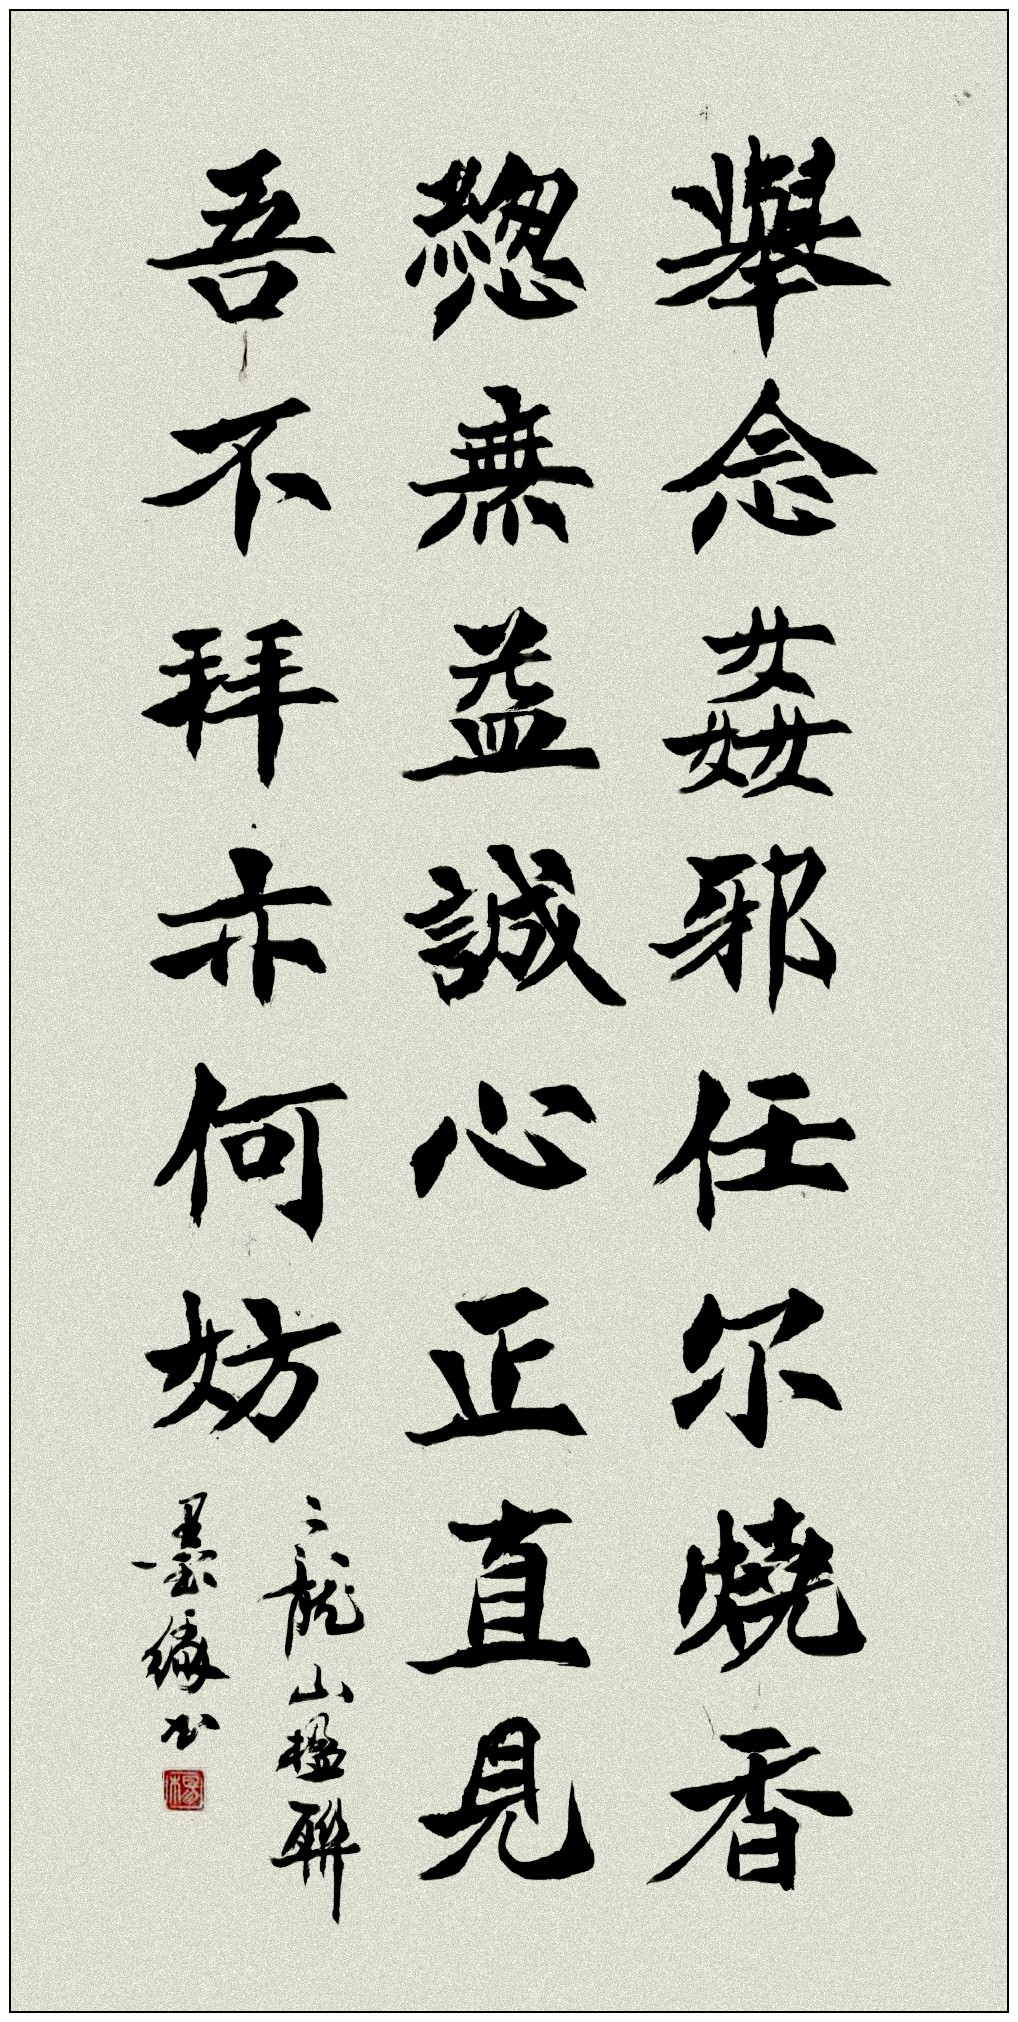 舉念姦邪任尔燒香
總無益誠心正直見
吾不拜亦何妨
二龍山楹聯
墨緣书
楊